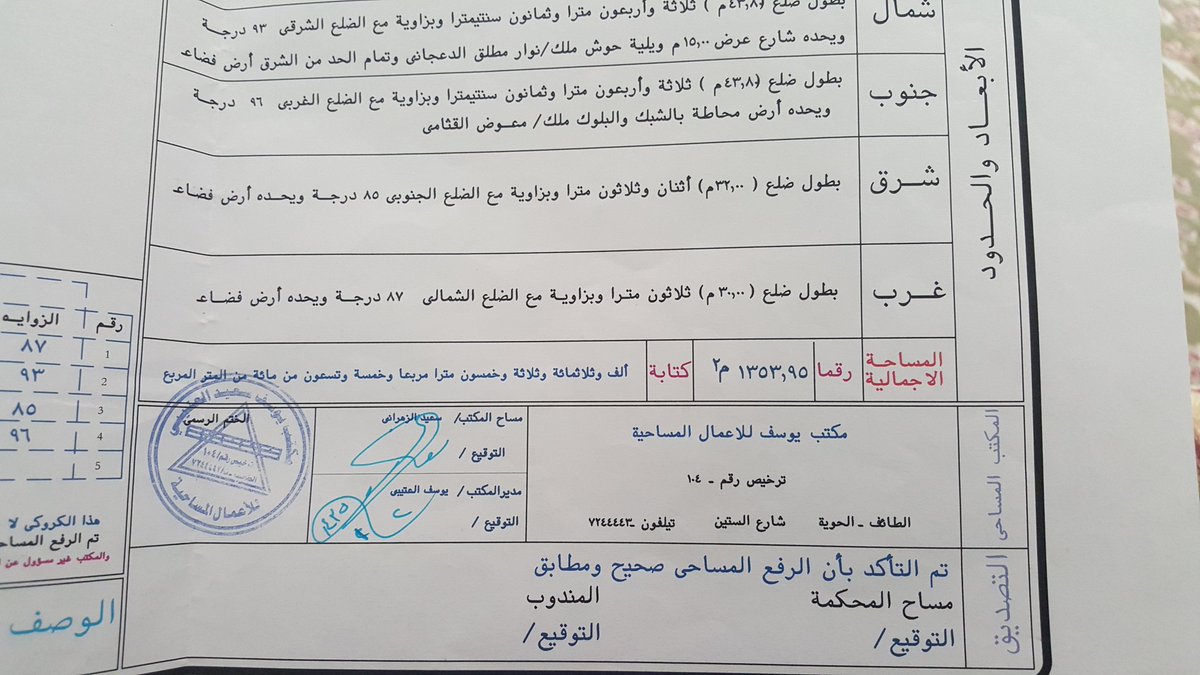 الأبعاد والحدود
شمال
بطول ضلع (٤٣,٨٠م ) ثلاثة وأربعون مترا وثمانون سنتيمترا وبزاوية مع الضلع الشرقى ٩٣ درجة
ويحده شارع عرض ١٥,٠٠م ويلية حوش ملك/نوار مطلق الدعجانى وتمام الحد من الشرق أرض فضاء
جنوب
بطول ضلع (٤٣,٨٠م ) ثلاثة وأربعون مترا وثمانون سنتيمترا وبزاوية مع الضلع الغربى ٩٦ درجة
ويحده أرض محاطة بالشبك والبلوك ملك/ معوض القثامى
شرق
بطول ضلع ( ٣٢,٠٠م) أثنان وثلاثون مترا وبزاوية مع الضلع الجنوبى ٨٥ درجة ويحده أرض فضاء
غرب
بطول ضلع ( ٣٠,٠٠م) ثلاثون مترا وبزاوية مع الضلع الشمالى ٨٧ درجة ويحده أرض فضاء
المساحة الاجمالية
رقما
١٣٥٣,٩٥ م٢
كتابة
ألف وثلاثمائة وثلاثة وخمسون مترا مربعا وخمسة وتسعون من مائة من المتر المربع
المكتب المساحى
مكتب يوسف للاعمال المساحية
ترخيص رقم - ١٠٤
الطائف - الحوية شارع الستين تيلفون - ٧٢٤٤٤٤٣
مساح المكتب/ سعيد الزهرانى
التوقيع /
مدير المكتب/ يوسف العتيبى
التوقيع /
الختم الرسمى
للأعمال المساحية
التصديق
تم التأكد بأن الرفع المساحى صحيح ومطابق
مساح المحكمة المندوب
التوقيع/ التوقيع/
رقم الزوايه
1 ٨٧
2 ٩٣
3 ٨٥
4 ٩٦
5
هذا الكروكى لا
تم الرفع المساح
والمكتب غير مسؤول عن
الوصف